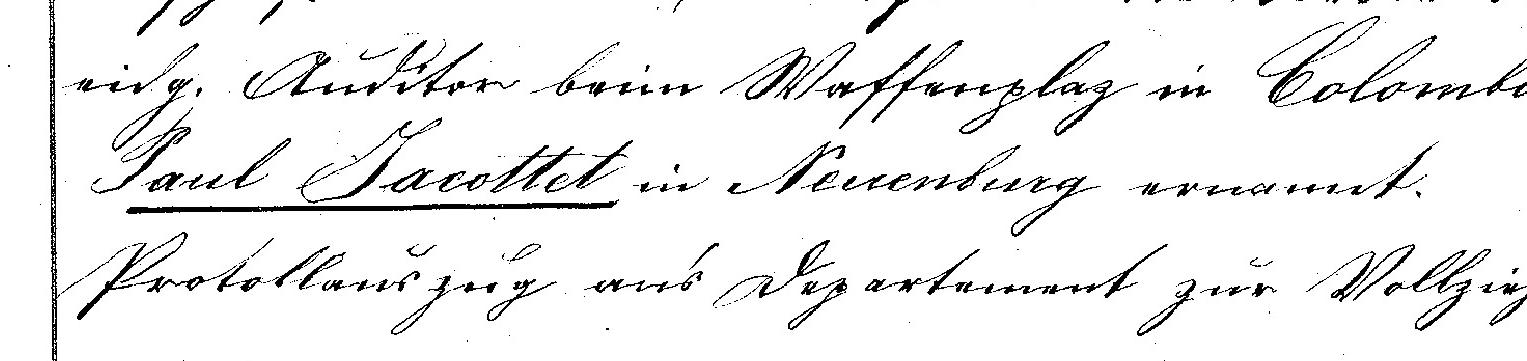 eidg. Auditor beim Waffenplaz in Colombi
Paul Jacottet in Neuenburg ernannt.
Protokllauszug an's Departement zur Vollzieh